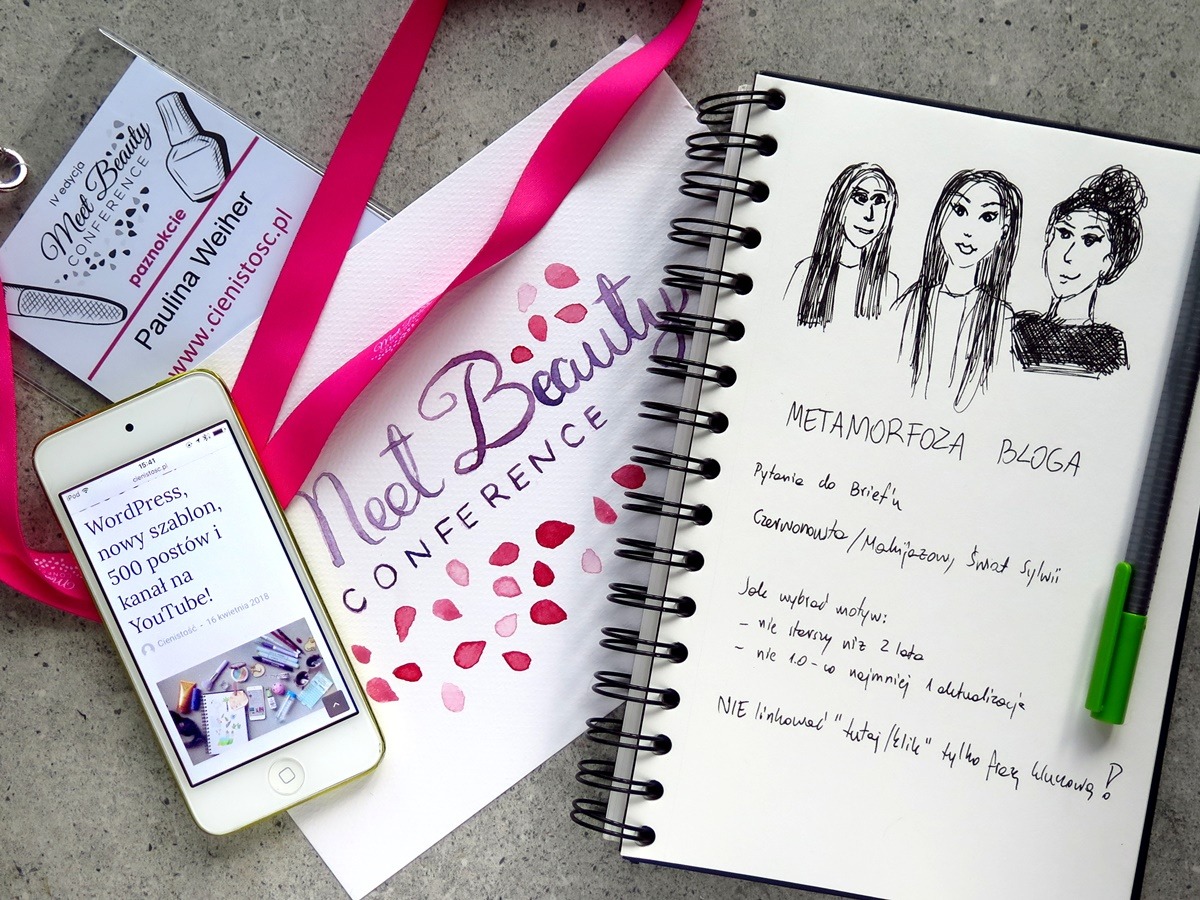 IV edycja
Meet Beauty
CONFERENCE
paznokcie
Paulina Weiher
www.cienistosc.pl
iPod
15:41
cienistosc.pl
WordPress,
nowy szablon,
500 postów i
kanał na
YouTube!
Cienistość - 16 kwietnia 2018
Meet Beauty
CONFERENCE
METAMORFOZA BLOGA
Pytania do Brief'u
Czerwonousta/Makijażowy Świat Sylwii
Jak wybrać motyw:
- nie starszy niż 2 lata
- nie 1.0 - co najmniej 1 aktualizacja
NIE linkować "tutaj/klik" tylko frazą kluczową!